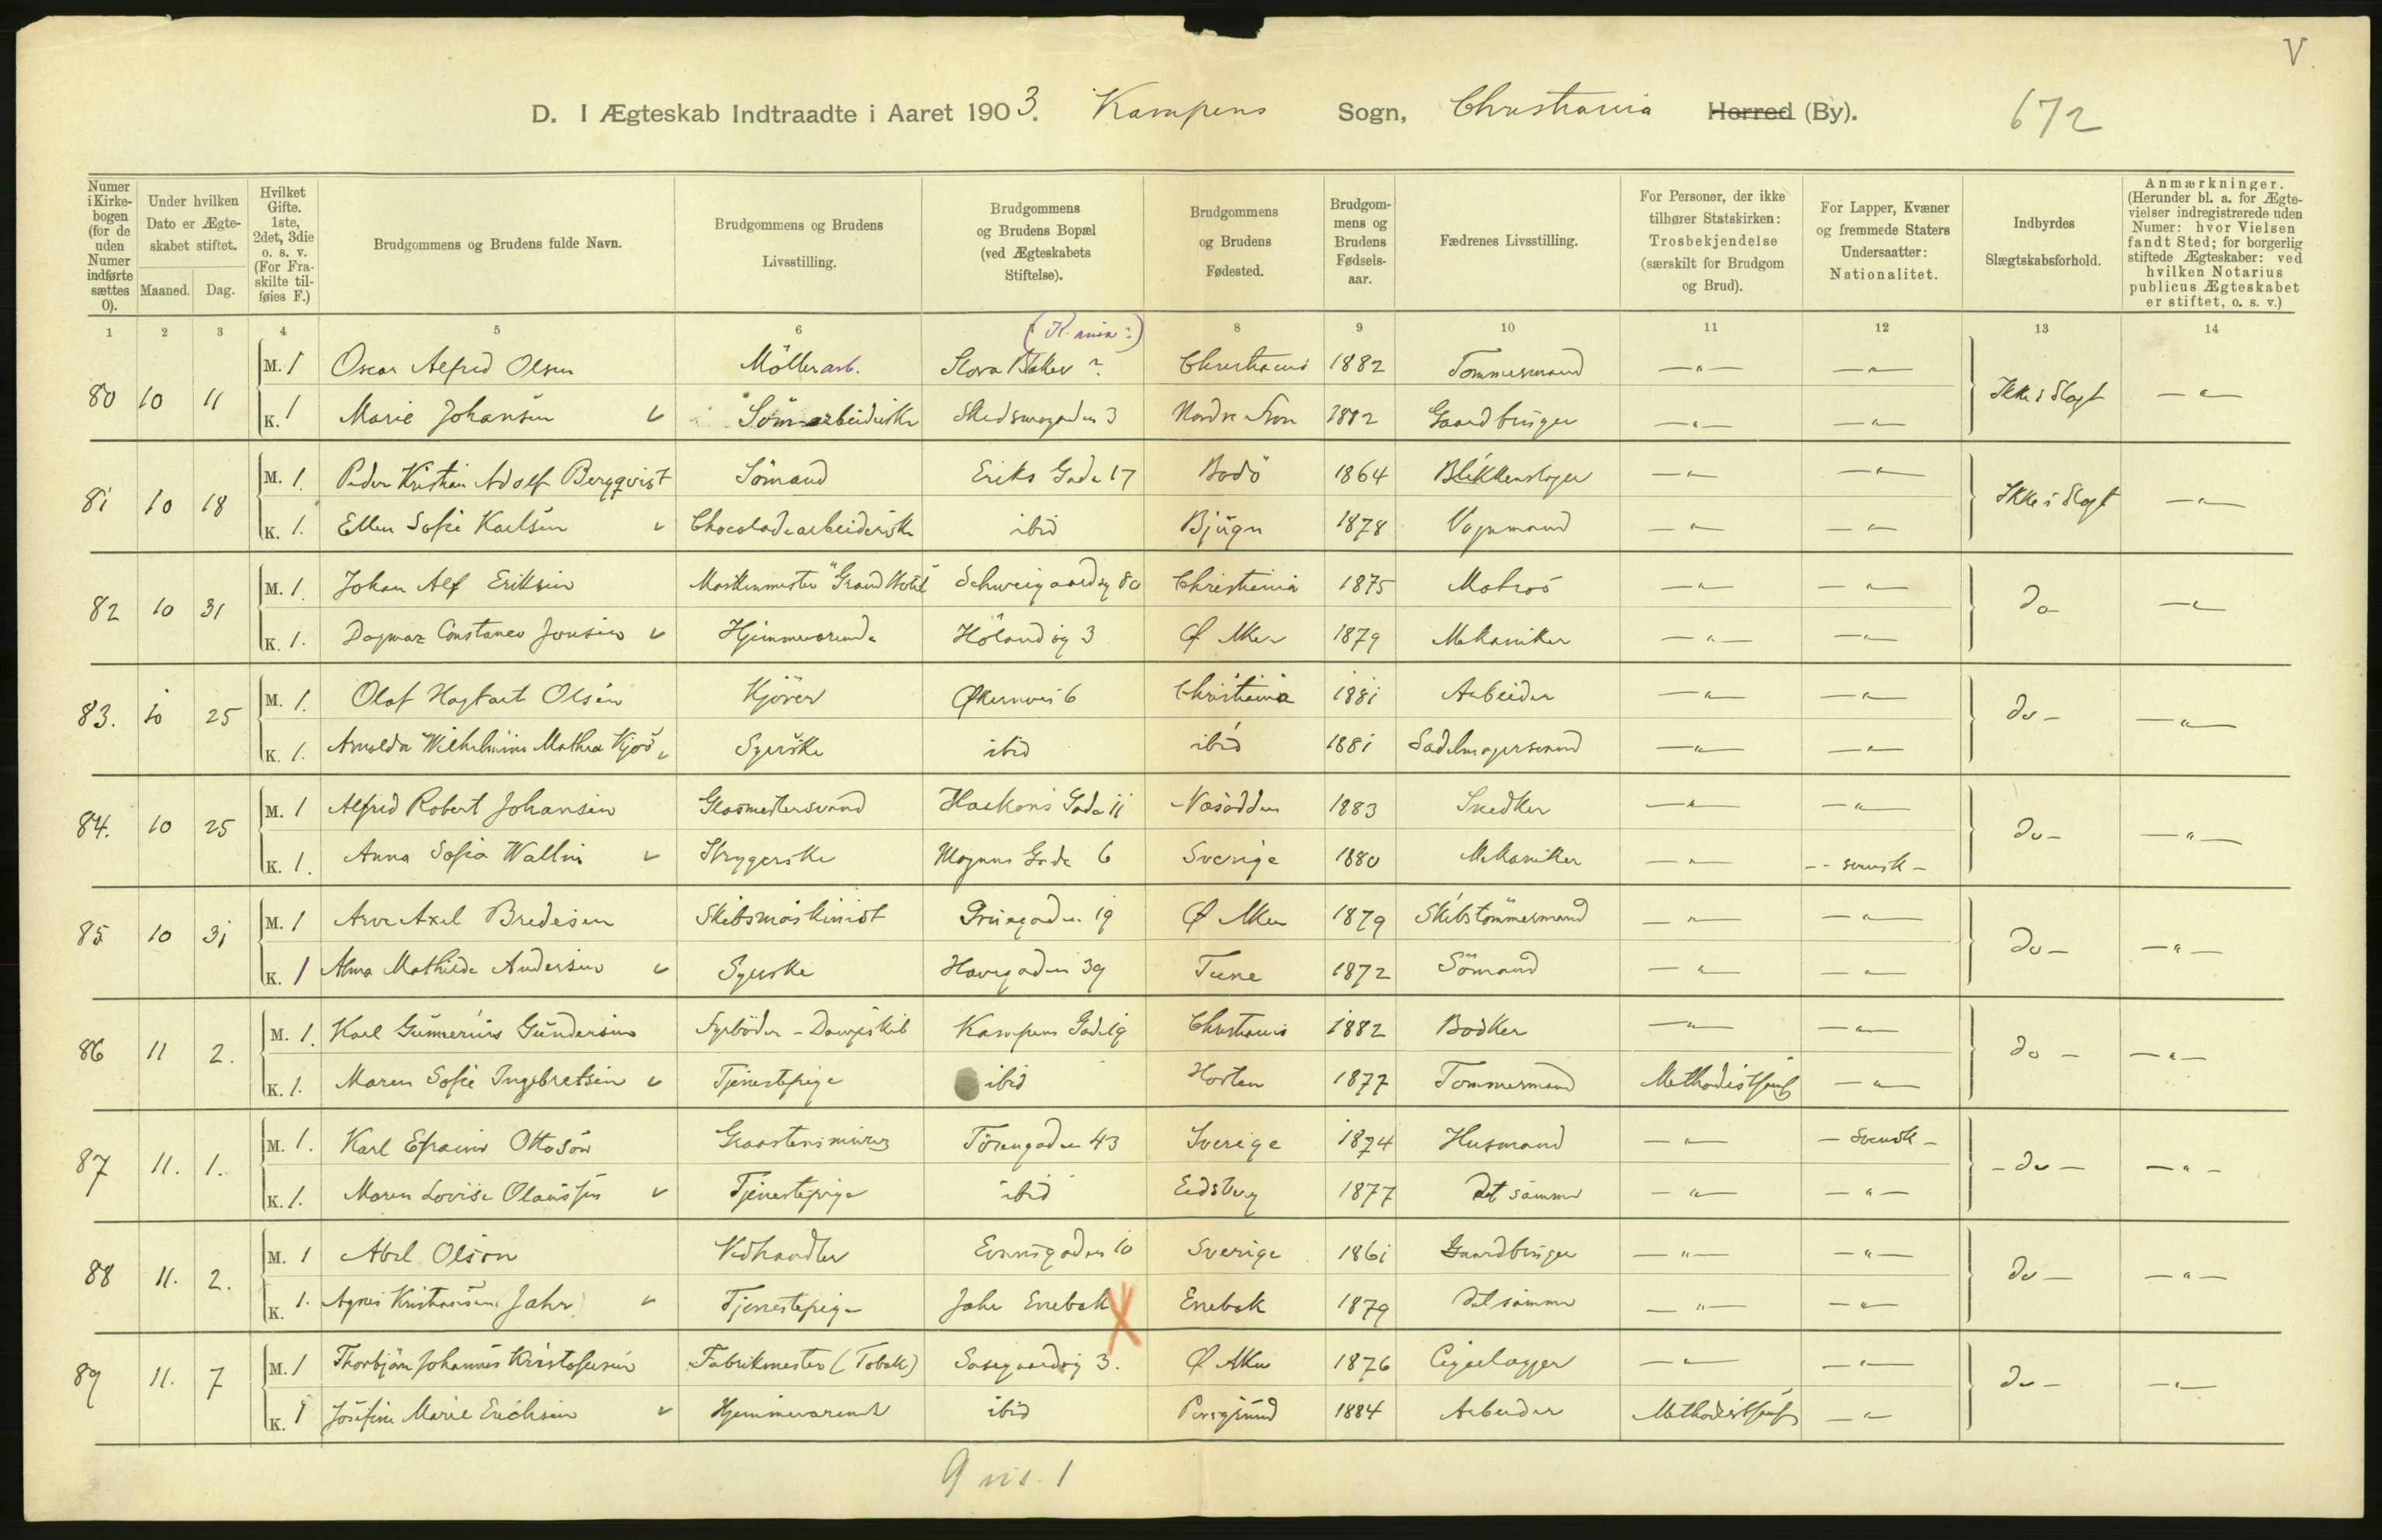 V
D. I Ægteskab Indtraadte i Aaret 1903. Kampens Sogn, Christiania Herred (By). 672
Numer i Kirkebogen (for de uden Numer indførte sættes 0).
Under hvilken Dato er Ægteskabet stiftet.
Maaned. Dag.
Hvilket Gifte. 1ste, 2det, 3die o. s. v. (For Fraskilte tilføies F.)
Brudgommens og Brudens fulde Navn.
Brudgommens og Brudens Livsstilling.
Brudgommens og Brudens Bopæl (ved Ægteskabets Stiftelse).
Brudgommens og Brudens Fødested.
Brudgommens og Brudens Fødselsaar.
Fædrenes Livsstilling.
For Personer, der ikke tilhører Statskirken: Trosbekjendelse (særskilt for Brudgom og Brud).
For Lapper, Kvæner og fremmede Staters Undersaatter: Nationalitet.
Indbyrdes Slægtskabsforhold.
Anmærkninger. (Herunder bl. a. for Ægtevielser indregistrerede uden Numer: hvor Vielsen fandt Sted; for borgerlig stiftede Ægteskaber: ved hvilken Notarius publicus Ægteskabet er stiftet, o. s. v.)
1 2 3 4 5 6 8 9 10 11 12 13 14
80 10 11 M. 1 Oscar Alfred Olsen Möllerarb. Christiania 1882 Tømmermand —"— —"— Ikke i Slægt —"—
K. 1 Marie Johansen Sömarbeiderske Skedsmogaden 3 Nordre Fron 1882 Gaardbruger —"— —"—
81 10 18 M. 1. Peder Kristian Adolf Bergqvist Sömand Eriks Gade 17 Bodö 1864 Blikkenslager —"— —"— Ikke i Slægt —"—
K. 1. Ellen Sofie Karlsen Chocoladearbeiderske ibid Bjugn 1878 Vognmand —"— —"—
82 10 31 M. 1. Johan Alf Eriksen Maskinmester "Grand Hotel" Schweigaardsg 80 Christiania 1875 Matros —"— —"— do —"—
K. 1. Dagmar Constance Jonsen Hjemmeværende Hölandsg 3 Ø Aker 1879 Mekaniker —"— —"—
83. 10 25 M. 1. Olaf Hagbart Olsen Kjörer Økernvei 6 Christiania 1881 Arbeider —"— —"— do — —"—
K. 1. Arnolda Wilhelmine Mathea Kjos Syerske ibid ibid 1881 Sadelmagersvend —"— —"—
84. 10 25 M. 1 Alfred Robert Johansen Glasmestersvend Haakons Gade 11 Næsodden 1883 Snedker —"— —"— do — —"—
K. 1. Anna Sofia Wallin Strygerske Magnus Gade 6 Sverige 1880 Mekaniker —"— -- svensk -
85 10 31 M. 1 Arve Axel Bredesen Skibsmaskinist Grüsgaden 19 Ø Aker 1879 Skibstömmermand —"— —"— do — —"—
K. 1 Alma Mathilde Andersen Syerske Havegaden 39 Tune 1872 Sömand —"— —"—
86 11 2. M. 1. Karl Gunnerius Gundersen Fyrböder - Dampskib Kampens Gade 19 Christiania 1882 Bødker —"— —"— do — —"—
K. 1. Maren Sofie Ingebretsen Tjenestepige ibid Horten 1877 Tømmermand Methodistsamf —"—
87 11. 1. M. 1. Karl Efraim Ottoson Graastensmurer 43 Sverige 1874 Husmand —"— - Svensk - - do — —"—
K. 1. Maren Lovise Olaussen Tjenestepige ibid Eidsberg 1877 det samme —"— —"—
88 11. 2. M. 1 Abel Olson Vedhandler 10 Sverige 1861 Gaardbruger —"— —"— do — —"—
K. 1. Agnes Kristiansen Jahr Tjenestepige Jahr Enebak Enebak 1879 det samme —"— —"—
89 11. 7 M. 1 Thorbjörn Johannes Kristofersen Fabrikmester (Tobak) 3. Ø Aker 1876 —"— —"— do — —"—
K. 1 Josefine Marie Erichsen Hjemmeværende ibid Porsgrund 1884 Arbeider Methodistsamf —"—
9 vis. 1